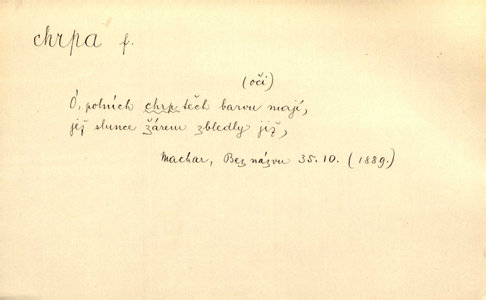 chrpa f.
(oči)
Ó, polních chrp těch barvu mají,
jež slunce žárem zbledly již,
Machar, Bez názvu 35.10. (1889.)